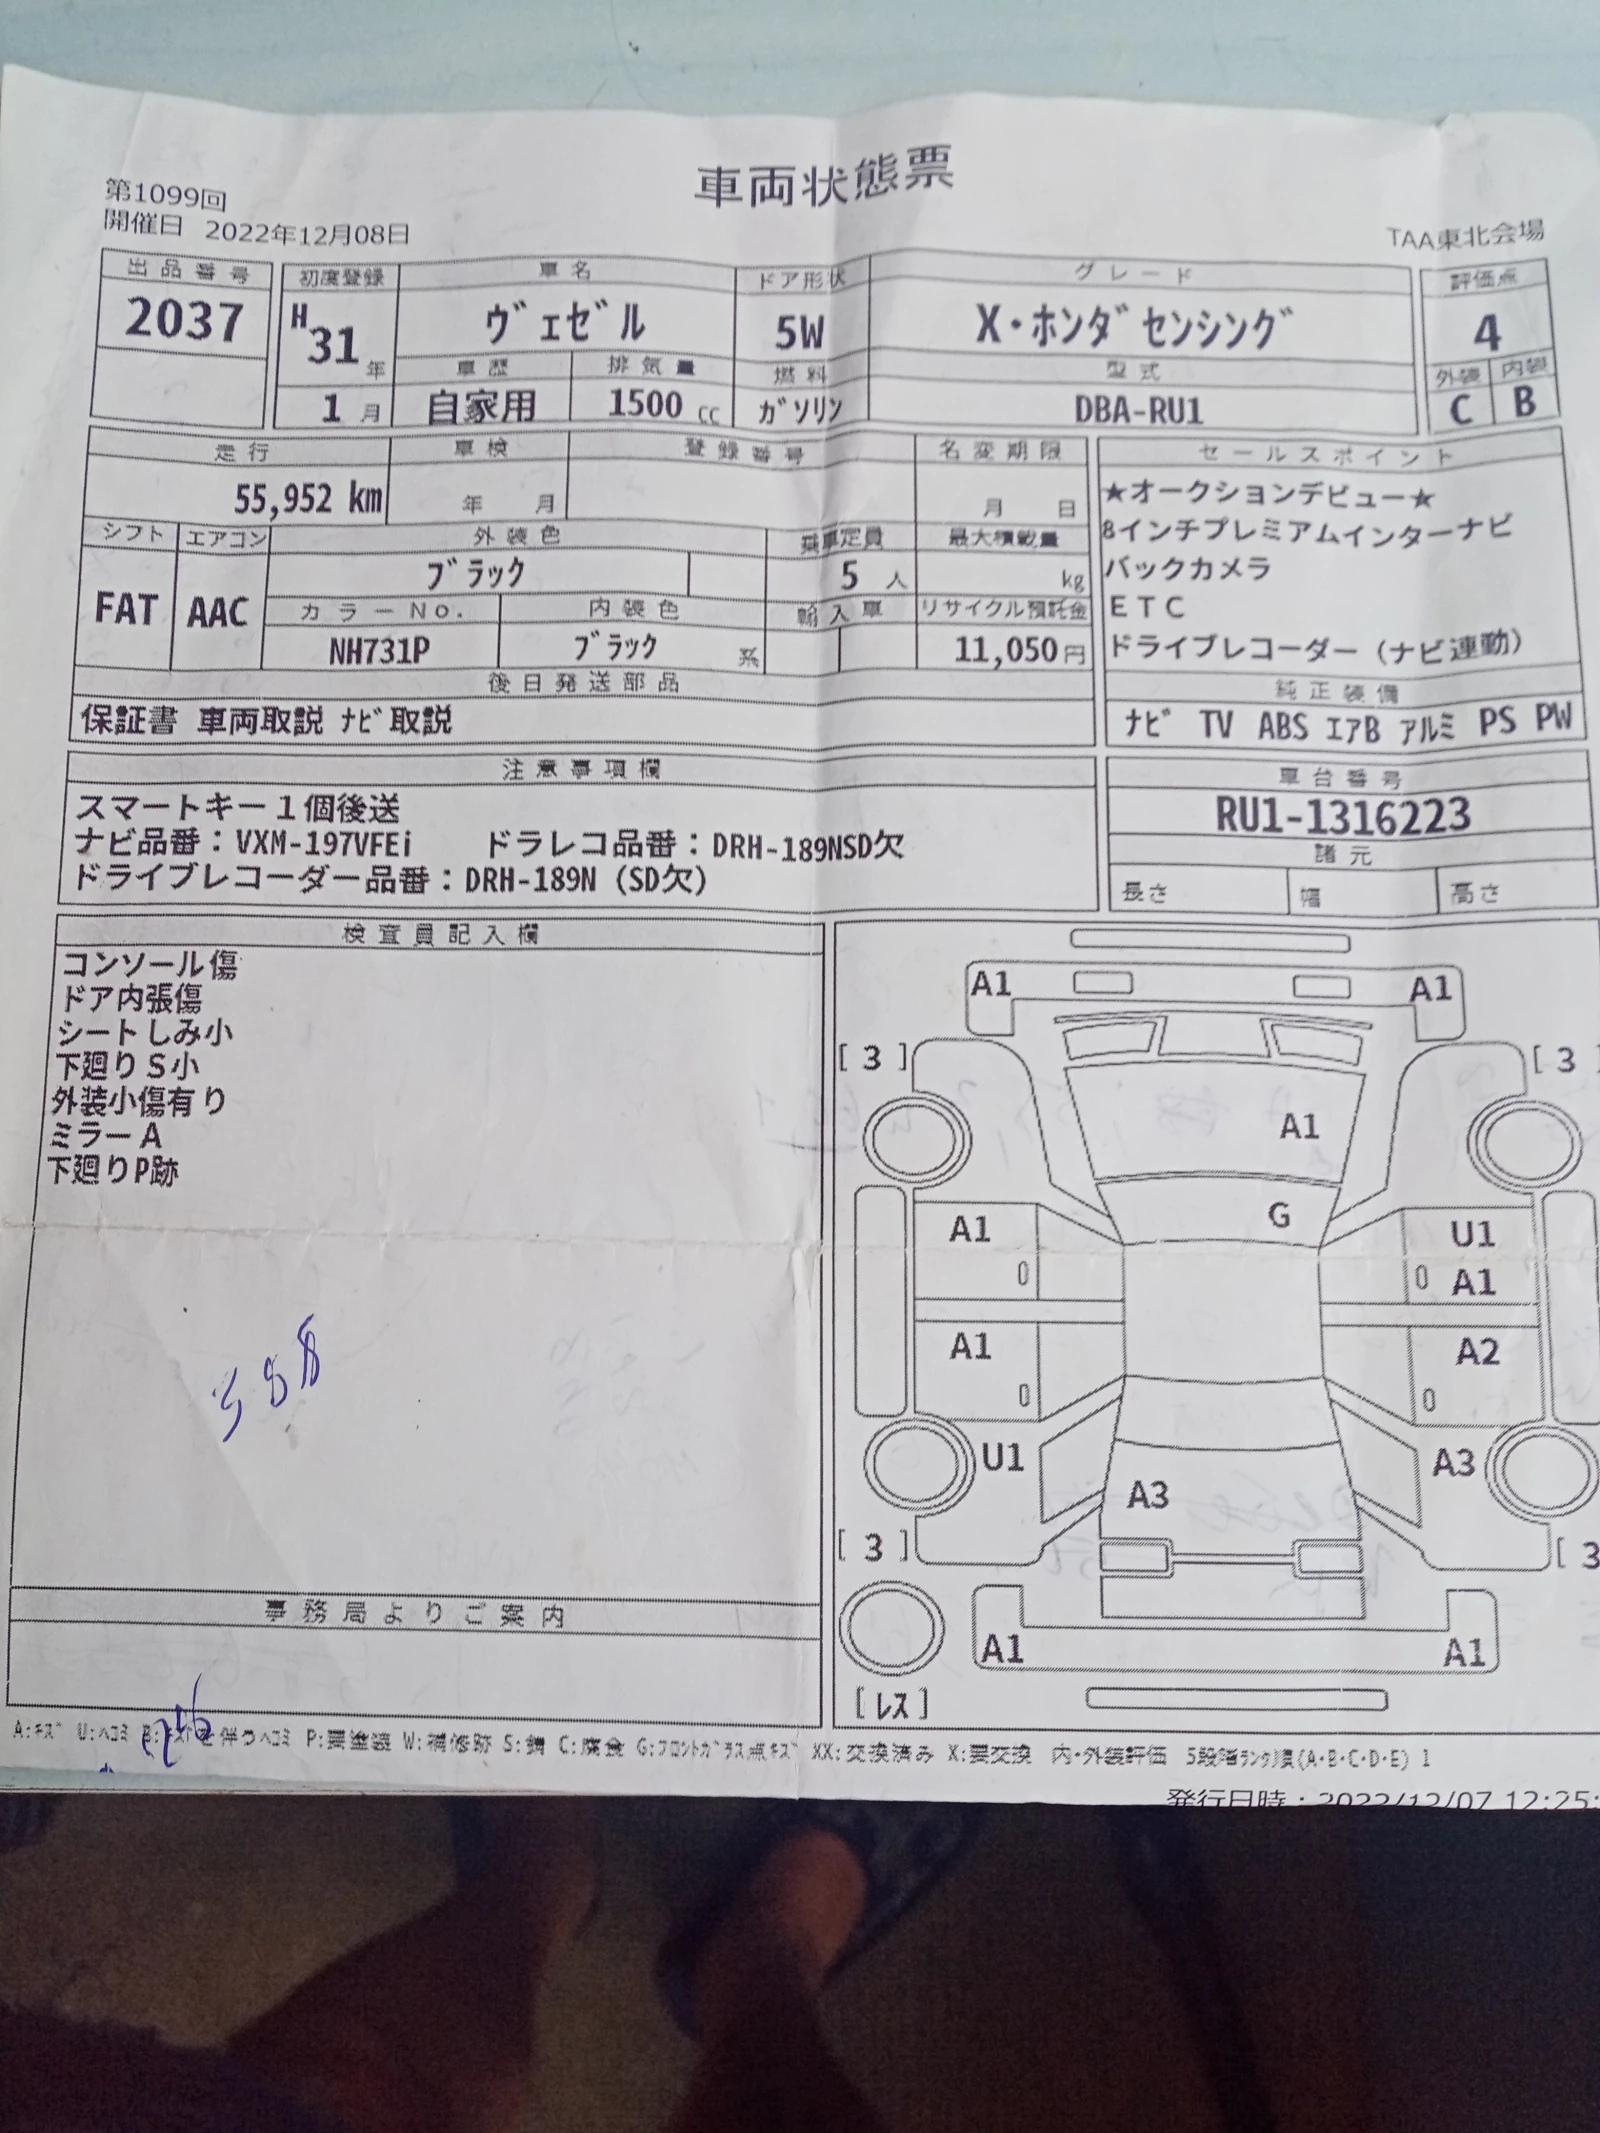 車両状態票
第1099回
開催日 2022年12月08日
TAA東北会場
出品番号
2037
初度登録
H31年
1月
車名
ヴェゼル
ドア形状
5W
グレード
X・ホンダセンシング
評価点
4
車歴
自家用
排気量
1500 cc
燃料
ガソリン
型式
DBA-RU1
外装 内装
C B
走行
55,952 km
車検
年 月
登録番号
名変期限
月 日
セールスポイント
★オークションデビュー★
8インチプレミアムインターナビ
バックカメラ
ETC
ドライブレコーダー（ナビ連動）
シフト
FAT
エアコン
AAC
外装色
ブラック
乗車定員
5 人
最大積載量
kg
カラーNo.
NH731P
内装色
ブラック 系
輸入車
リサイクル預託金
11,050円
後日発送部品
保証書 車両取説 ナビ取説
純正装備
ナビ TV ABS エアB アルミ PS PW
注意事項欄
スマートキー１個後送
ナビ品番：VXM-197VFEi ドラレコ品番：DRH-189NSD欠
ドライブレコーダー品番：DRH-189N（SD欠）
車台番号
RU1-1316223
諸元
長さ 幅 高さ
検査員記入欄
コンソール傷
ドア内張傷
シートしみ小
下廻りＳ小
外装小傷有り
ミラーＡ
下廻りP跡
588
事務局よりご案内
A1 A1
[ 3 ] [ 3 ]
A1
G
A1 U1
A1
A1 A2
U1 A3
A3
[ 3 ] [ 3
A1 A1
[ レス ]
A:キズ U:ヘコミ B:キズを伴うヘコミ P:要塗装 W:補修跡 S:錆 C:腐食 G:フロントガラス点キズ XX:交換済み X:要交換 内・外装評価 5段階ランク順(A・B・C・D・E) 1
発行日時：2022/12/07 12:25: